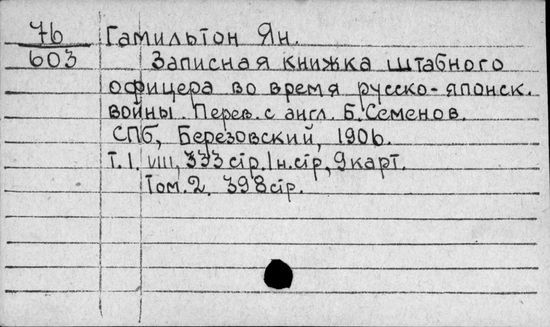 76 Гамильтон Ян.
603 Записная книжка штабного
офицера во время русско-японск.
войны. Перев. с англ. Б. Семенов.
СПб, Березовский, 1906.
Т.1. VIII, 333 стр. 1 н.стр, 9 карт.
Том. 2. 398 стр.